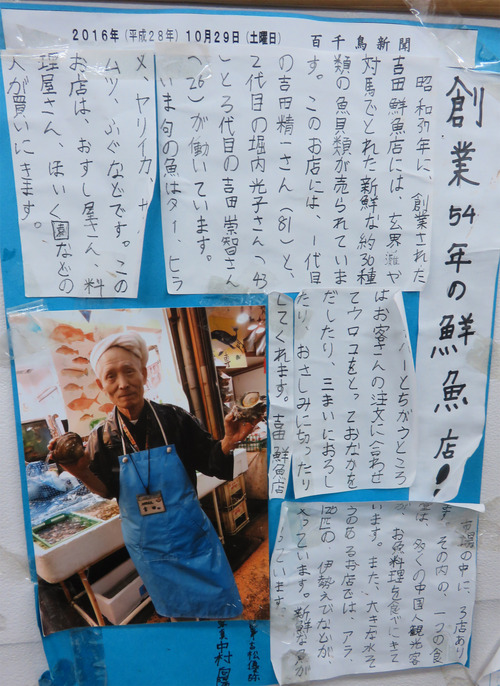 2016年(平成28年)10月29日(土曜日) 百千鳥新聞
創業54年の鮮魚店!
昭和37年に、創業された
吉田鮮魚店には、玄界灘や
対馬でとれた新鮮な約30種
類の魚貝類が売られていま
す。このお店には、1代目
の吉田精一さん(81)と、
2代目の堀内光子さん(43
)と3代目の吉田崇智さん
(26)が働いています。
いま旬の魚はタイ、ヒラ
メ、ヤリイカ、
ムツ、ふぐなどです。この
お店は、おすし屋さん、料
理屋さん、ほいく園などの
人が買いにきます。
とちがうところ
はお客さんの注文に合わせ
てウロコをとっておなかを
だしたり、三まいにおろし
たり、おさしみに切ったり
してくれます。吉田鮮魚店
市場の中に、3店あり
ます。その内の、一つの食
は、多くの中国人観光客
が、お魚料理を食べにきて
います。また、大きな水そ
うのある店では、アラ、
匹の、伊勢えびなどが、
入っています。新鮮な魚が
っています。
中村